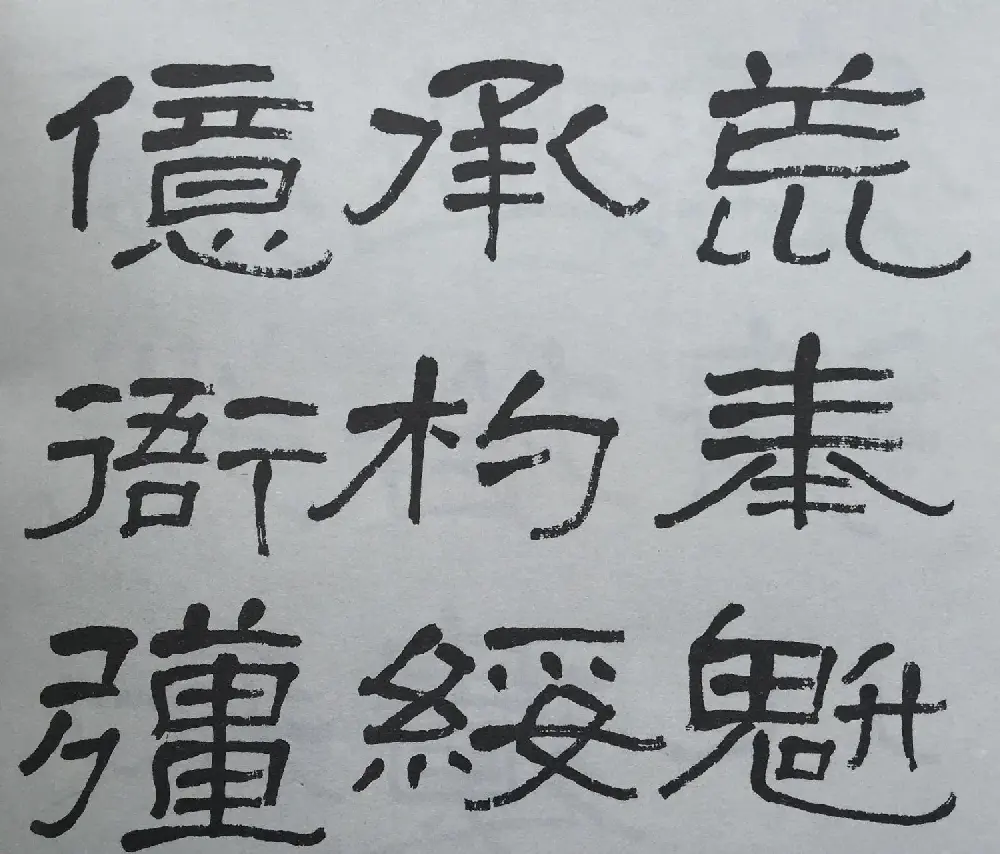 荒奉魁
承杓綏
億衙彊